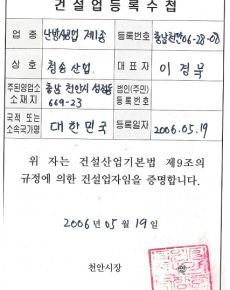 건 설 업 등 록 수 첩
업 종 난방시공업 제1종 등록번호 충남천안06-28-08
상 호 청송산업. 대 표 자 이 경 복
주된영업소 소 재 지 충남 천안시 성남 669-23 법인(주민) 등록번호
국적 또는 소속국가명 대 한 민 국 등록일자 2006.05.19
위 자는 건설산업기본법 제9조의
규정에 의한 건설업자임을 증명합니다.
2006 년 05 월 19 일
천안시장